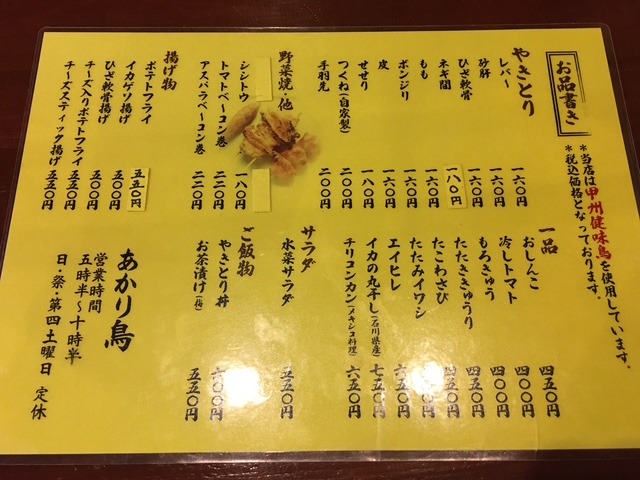 お品書き
*当店は甲州健味鳥を使用しています。
*税込価格となっております。
やきとり
レバー 一六〇円
砂肝 一六〇円
ひざ軟骨 一六〇円
ネギ間 一八〇円
もも 一六〇円
ボンジリ 一六〇円
皮 一六〇円
せせり 一八〇円
つくね(自家製) 二〇〇円
手羽先 二〇〇円
野菜焼・他
シシトウ 一八〇円
トマトベーコン巻 二二〇円
アスパラベーコン巻 二二〇円
揚げ物
ポテトフライ 五五〇円
イカゲソ揚げ 五〇〇円
ひざ軟骨揚げ 五〇〇円
チーズ入りポテトフライ 五五〇円
チーズスティック揚げ 五五〇円
一品
おしんこ 四五〇円
冷しトマト 四〇〇円
もろきゅう 四〇〇円
たたききゅうり 四五〇円
たこわさび 四五〇円
たたみイワシ
エイヒレ 六五〇円
イカの丸干し(石川県産) 七五〇円
チリコンカン(メキシコ料理) 六五〇円
サラダ
水菜サラダ 五五〇円
ご飯物
やきとり丼 六〇〇円
お茶漬け(梅) 五五〇円
あかり鳥
営業時間
五時半〜十時半
日・祭・第四土曜日 定休